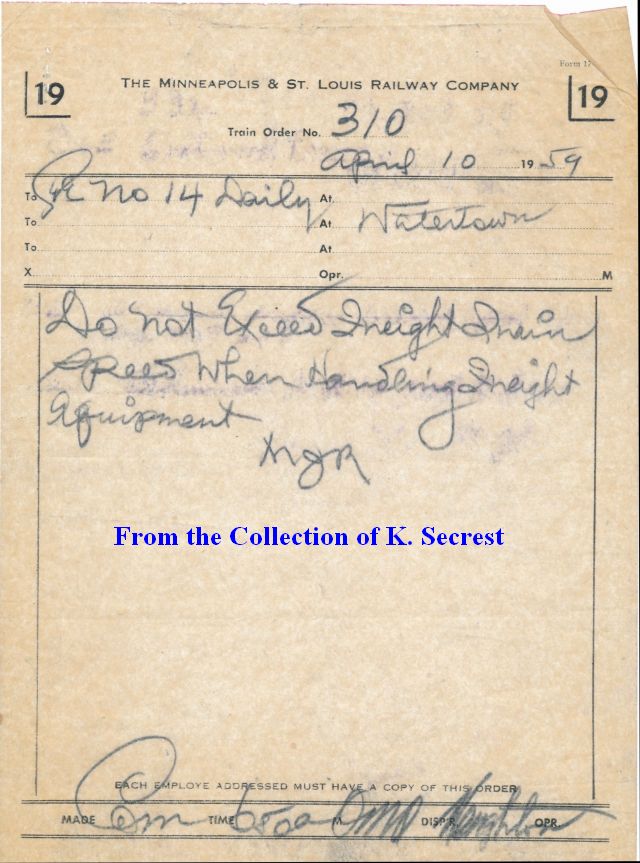 Form 19
19 THE MINNEAPOLIS & ST. LOUIS RAILWAY COMPANY 19
Train Order No. 310
April 10 1959
To C&E No 14 Daily At
To At Watertown
To At
X Opr. M
Do not Exceed Freight Train
Speed When Handling Freight
Equipment
From the Collection of K. Secrest
EACH EMPLOYE ADDRESSED MUST HAVE A COPY OF THIS ORDER
MADE Com TIME M DISP'R. OPR.